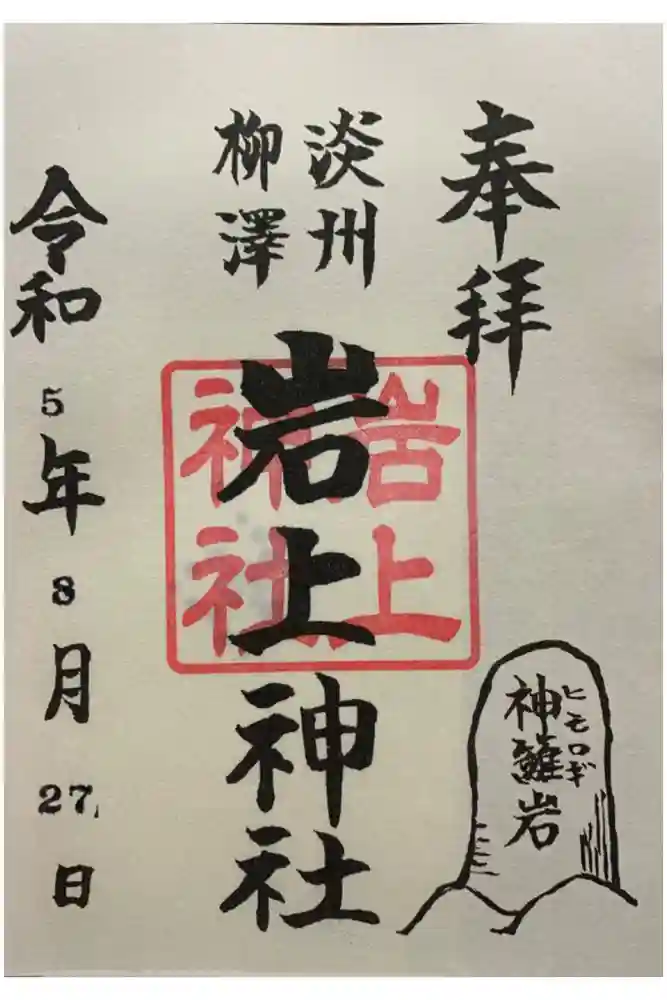 奉拝
淡州
柳澤
岩上神社
岩上
神社
神籬岩
ヒモロギ
令和5年8月27日